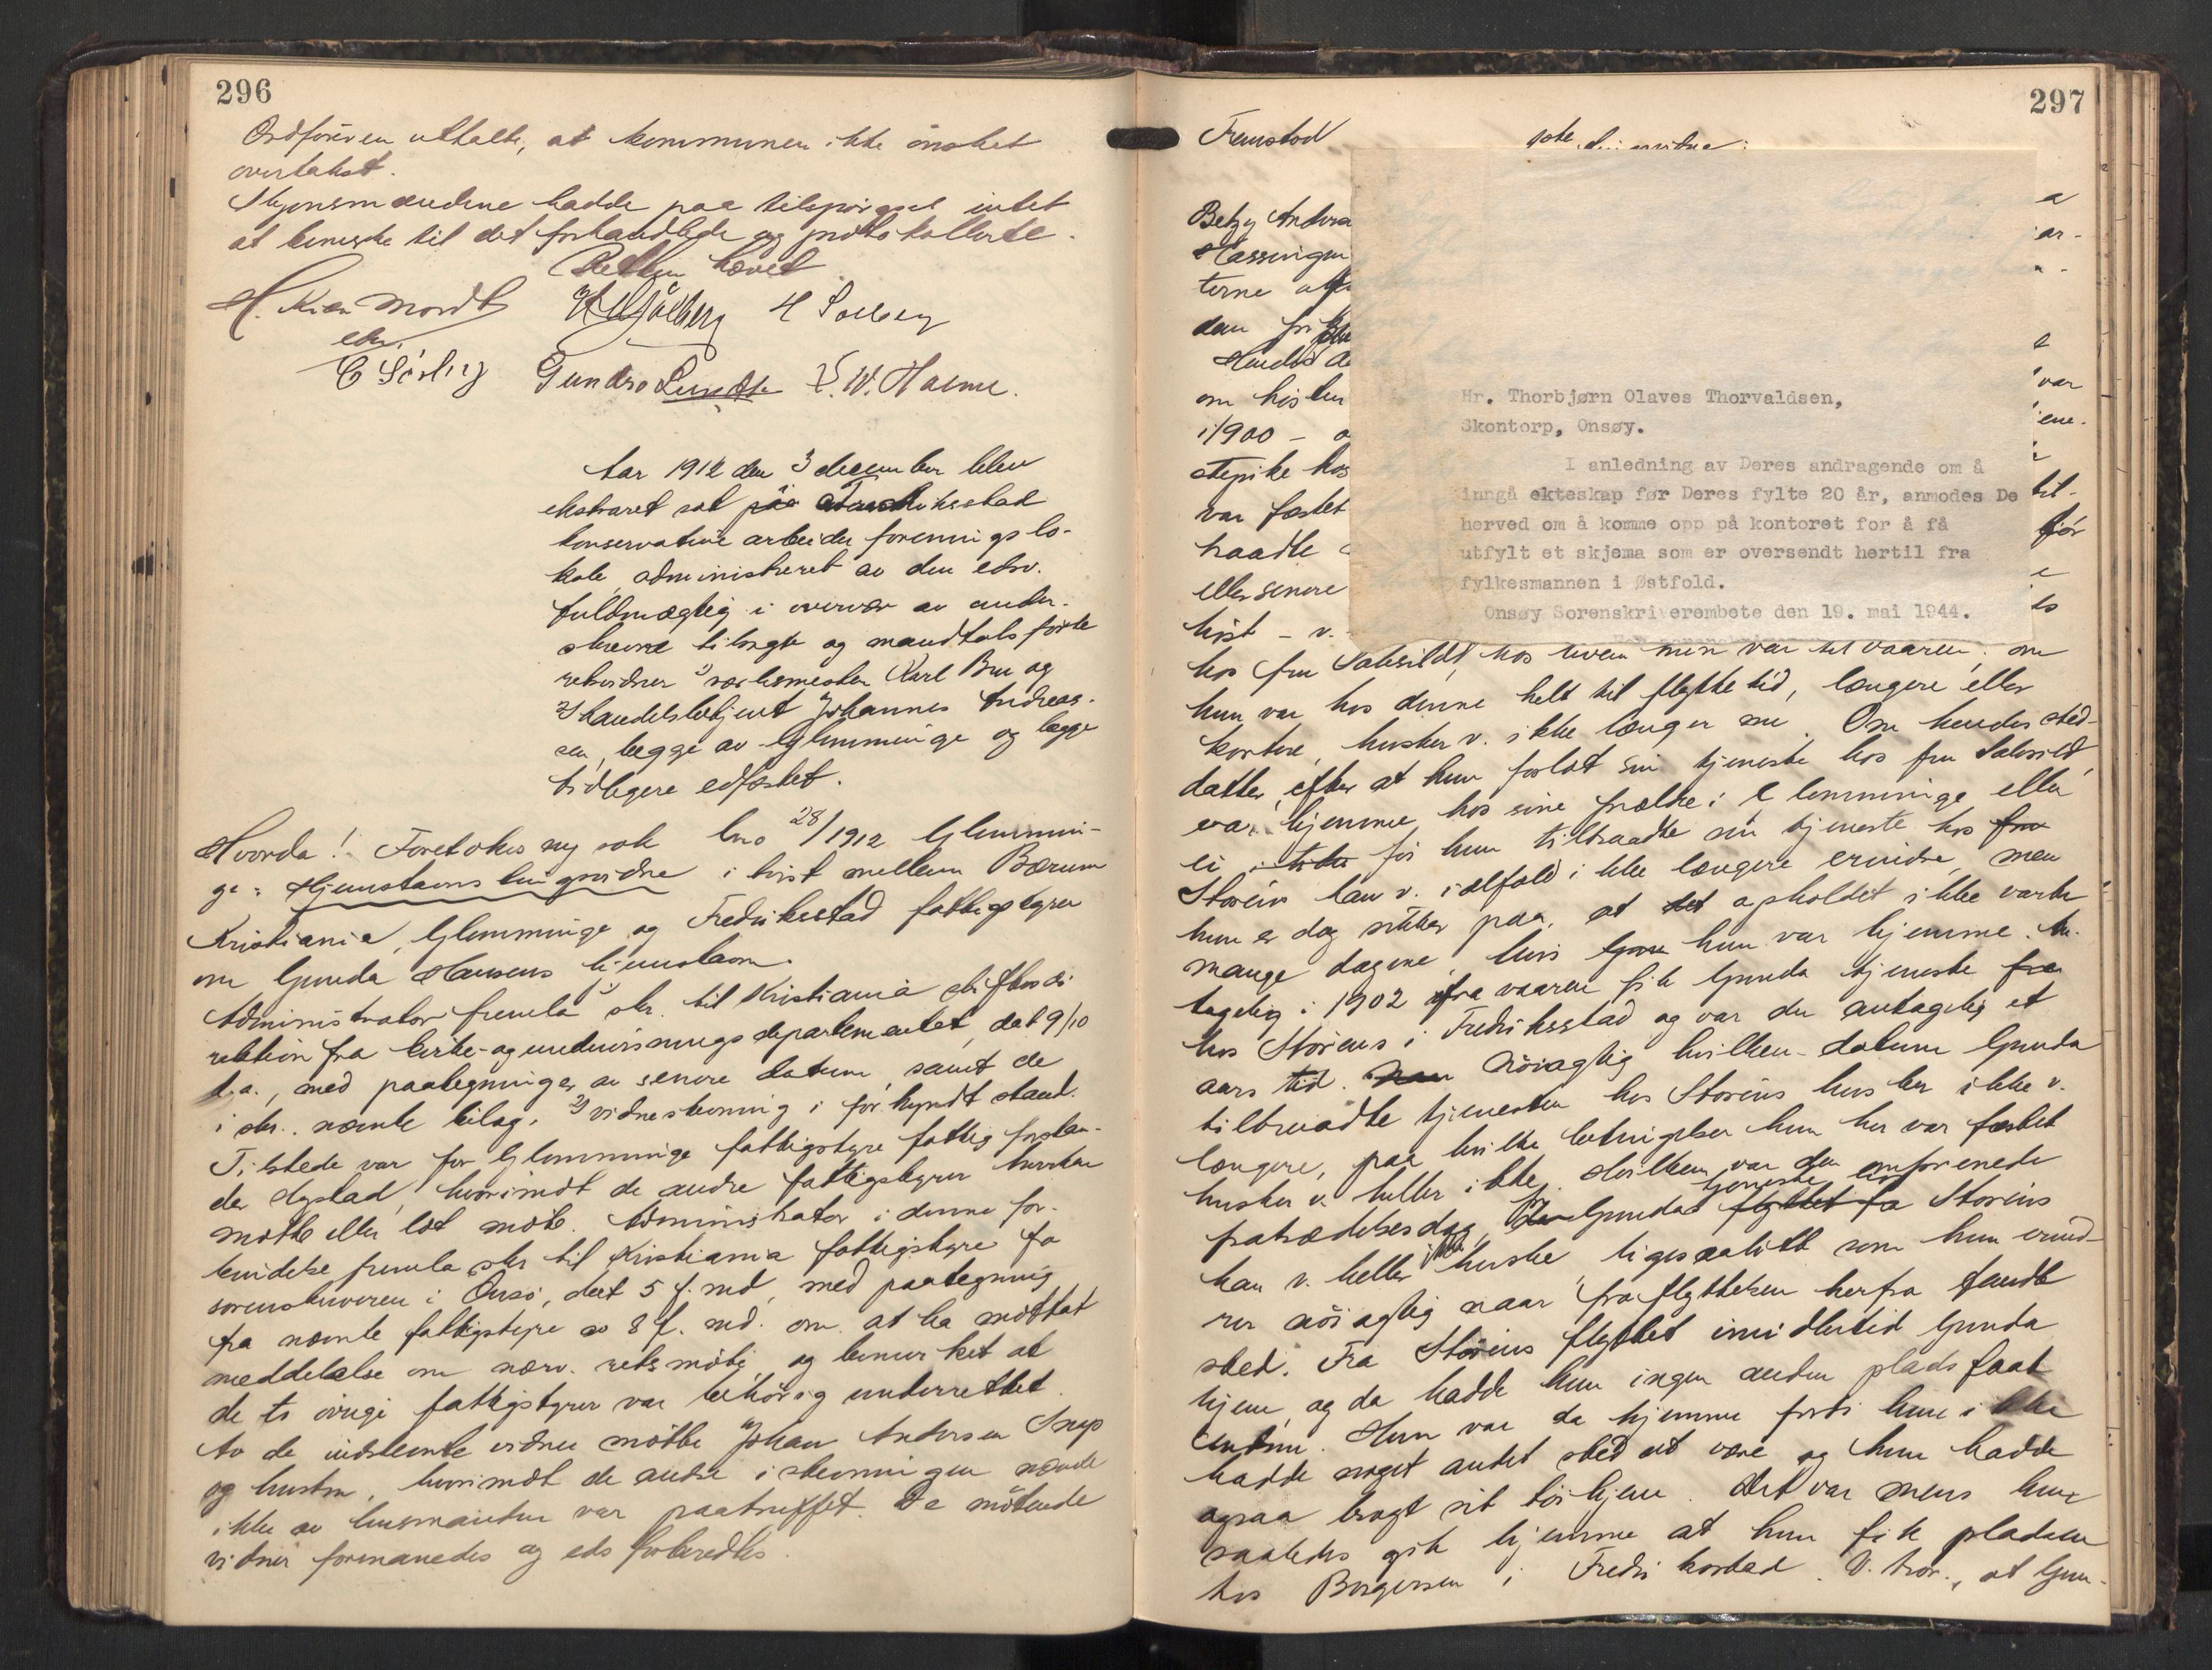 296
Ordföreren uttalte, at kommunen ikke önsket
overtakst.
Skjønsmændene hadde paa tilspörgsel intet
at bemerke til det forhandlede og protokollerte.
Retten hævet
H. Kiær Mordt H. Solberg
eken.
C Sörby Gundro Lunde W. Halme.
Aar 1912 den 3 december blev
ekstraret sat paa Fredriksstad
konservative arbeiderforenings lo-
kale, administreret av den edsv.
fuldmægtig i overvær av under-
skrevne tilsagte og mandtalsförte
retsvidner 1) verksmester Karl Bru og
2) handelsbetjent Johannes Andreas-
sen, begge av Glemminge og begge
tidligere edfæstet.
Hvorda! Foretokes ny sak No 28/1912 Glemmin-
ge: Hjemstavnstingsvidne i tvist mellem Bærum
Kristiania, Glemminge og Fredriksstad fattigstyrer
om Gunda Hansens hjemstavn.
Administrator fremla 1) skr. til Kristiania stiftsdi
rektion fra kirke- og undervisningsdepartementet, dat 9/10
d.a., med paategninger av senere datum, samt de
i skr. nævnte bilag, 2) vidnestevning i forkyndt stand.
Tilstede var for Glemminge fattigstyre fattigforstan-
der Aystad, hvorimot de andre fattigstyrer hverken
mötte eller lot möte. Administrator i denne for-
bindelse fremla skr til Kristiania fattigstyre fra
sorenskriveren i Onsö, dat 5 f. md, med paategning
fra nævnte fattigstyre av 8 f. md. om at ha mottat
meddelelse om nærv. retsmöte, og bemerket at
de to övrige fattigstyrer var behörig underrettet.
Av de indstevnte vidner mötte Johan Andersen Torp
og hustru, hvorimot de andre i stevningen nævnte
ikke av husmanden var paatruffet. De mötende
vidner formanedes og eds forberedtes.
297
Fremstod
Betzy Andrea
Hassingen
terne
den
Hendes
om hösten
i 1900 –
stepike hos
var fæstet
haadte
eller senere
höst – v.
a
ar-
var
ene.
til-
för
es
Hr. Thorbjørn Olaves Thorvaldsen,
Skontorp, Onsøy.
I anledning av Deres andragende om å
inngå ekteskap før Deres fylte 20 år, anmodes De
herved om å komme opp på kontoret for å få
utfylt et skjema som er oversendt hertil fra
fylkesmannen i Østfold.
Onsøy Sorenskriverembete den 19. mai 1944.
hos fru Sahlsild, hos hvem hun var til vaaren; om
hun var hos denne helt til flyttetid, længere eller
kortere, husker v. ikke længer nu. Om hendes sted-
datter, efter at hun forlot sin tjeneste hos fru Sahlsild,
var hjemme hos sine forældre i Glemminge eller
ei för hun tiltraadte sin tjeneste hos fru
Storeins kan v. ialfald ikke længere erindre, men
hun er dog sikker paa, at det opholdet ikke varte
mange dagene, hvis hun var hjemme. An-
tagelig i 1902 fra vaaren fik Gunda tjeneste fra
hos Störeins i Fredriksstad og var der antagelig et
aars tid. Nöiagtig hvilken datum Gunda
tiltraadte tjenesten hos Storeins husker ikke v.
længere, paa hvilke betingelser hun her var fæstet
husker v. heller ikke. Hvilken var den omforenede
fratrædelsesdag, Gundas tjeneste flyttet fra Storeins
kan v. heller ikke huske, ligesaalitt som hun erind-
rer nöiagtig naar fraflyttelsen herfra fandt
sted. Fra Störeins flyttet imidlertid Gunda
hjem, og da hadde hun ingen anden plads faat
endnu. Hun var da hjemme fordi hun ikke
hadde noget andet sted at være og hun hadde
ogsaa bragt sit töi hjem. Det var mens hun
saaledes gik hjemme at hun fik pladsen
hos Borgersen i Fredriksstad. V. tror., at Gun-